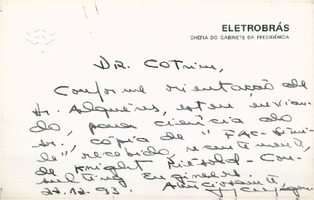 ELETROBRÁS
CHEFIA DO GABINETE DA PRESIDÊNCIA
DR. COTRIM,
Conforme orientação de
Dr. Alquéres, estou envian-
do, para ciência do
sr., cópia de "FAC-Simi-
le" recebido, recentemente,
de Knight Piésold - Con-
sulting Engineers.
27.12.93. Atenciosamente